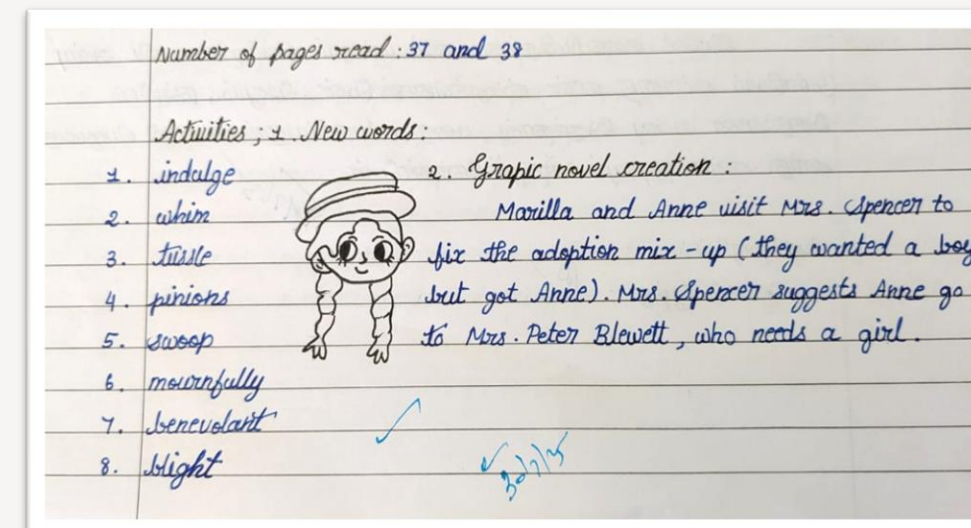 Number of pages read : 37 and 38
Activities ; 1. New words :
1. indulge
2. whim
3. tussle
4. pinions
5. swoop
6. mournfully
7. benevolant
8. blight
2. Grapic novel creation :
Marilla and Anne visit Mrs. Spencer to
fix the adoption mix-up (they wanted a boy
but got Anne). Mrs. Spencer suggests Anne go
to Mrs. Peter Blewett, who needs a girl.
30/7/25